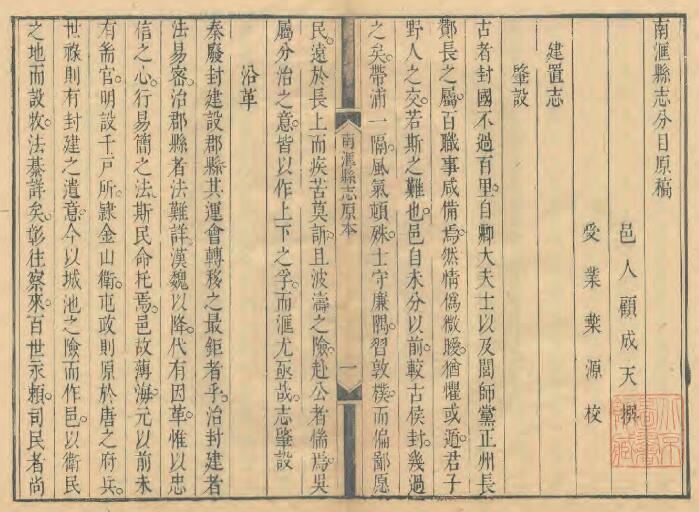 南滙縣志分目原稿
邑人顧成天撰
受業葉源校
建置志
肇設
古者封國不過百里自卿大夫士以及閭師黨正州長
鄼長之屬百職事咸備焉然情僞微曖猶懼或遁君子
野人之交若斯之難也邑自未分以前較古侯封幾過
之矣帶浦一隔風氣頓殊士守廉隅習敦樸而偏鄙愿
民遠於長上而疾苦莫訴且波濤之險赴公者惴焉吳
屬分治之意皆以作上下之孚而滙尤亟哉志肇設
沿革
秦廢封建設郡縣其運會轉移之最鉅者乎治封建者
法易密治郡縣者法難詳漢魏以降代有因革惟以忠
信之心行易簡之法斯民命托焉邑故薄海元以前未
有耑官明設千戸所隷金山衛屯政則原於唐之府兵
世祿則有封建之遺意今以城池之險而作邑以衛民
之地而設牧法綦詳矣彰往察來百世永賴司民者尚
南滙縣志原本
一